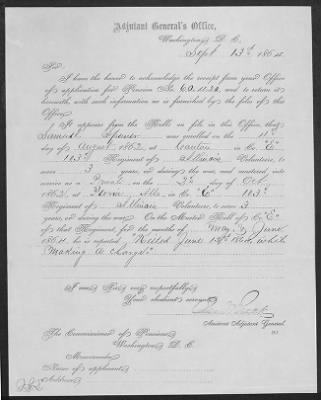 Adjutant General's Office,
Washington, D. C.
Sept 13th 1864
Sir:
I have the honor to acknowledge the receipt from your Office
of application for Pension No. 60.1120, and to return it
herewith, with such information as is furnished by the files of this
Office.
It appears from the Rolls on file in this Office, that
Samuel was enrolled on the 11th
day of August, 1862, at Canton in Co. "E"
103d Regiment of Illinois Volunteers, to
serve 3 years, or during the war, and mustered into
service as a Private on the 2d day of Oct
1862, at Peoria, Ills, in Co. "E" 103d
Regiment of Illinois Volunteers, to serve 3
years, or during the war. On the Muster Roll of Co. "E"
of that Regiment, for the months of May & June
1864, he is reported "Killed June while
making a charge"
I am, Sir, very respectfully,
Your obedient servant,
Assistant Adjutant General.
The Commissioner of Pensions,
Washington, D. C.
Memoranda:
Name of applicant,
Address,